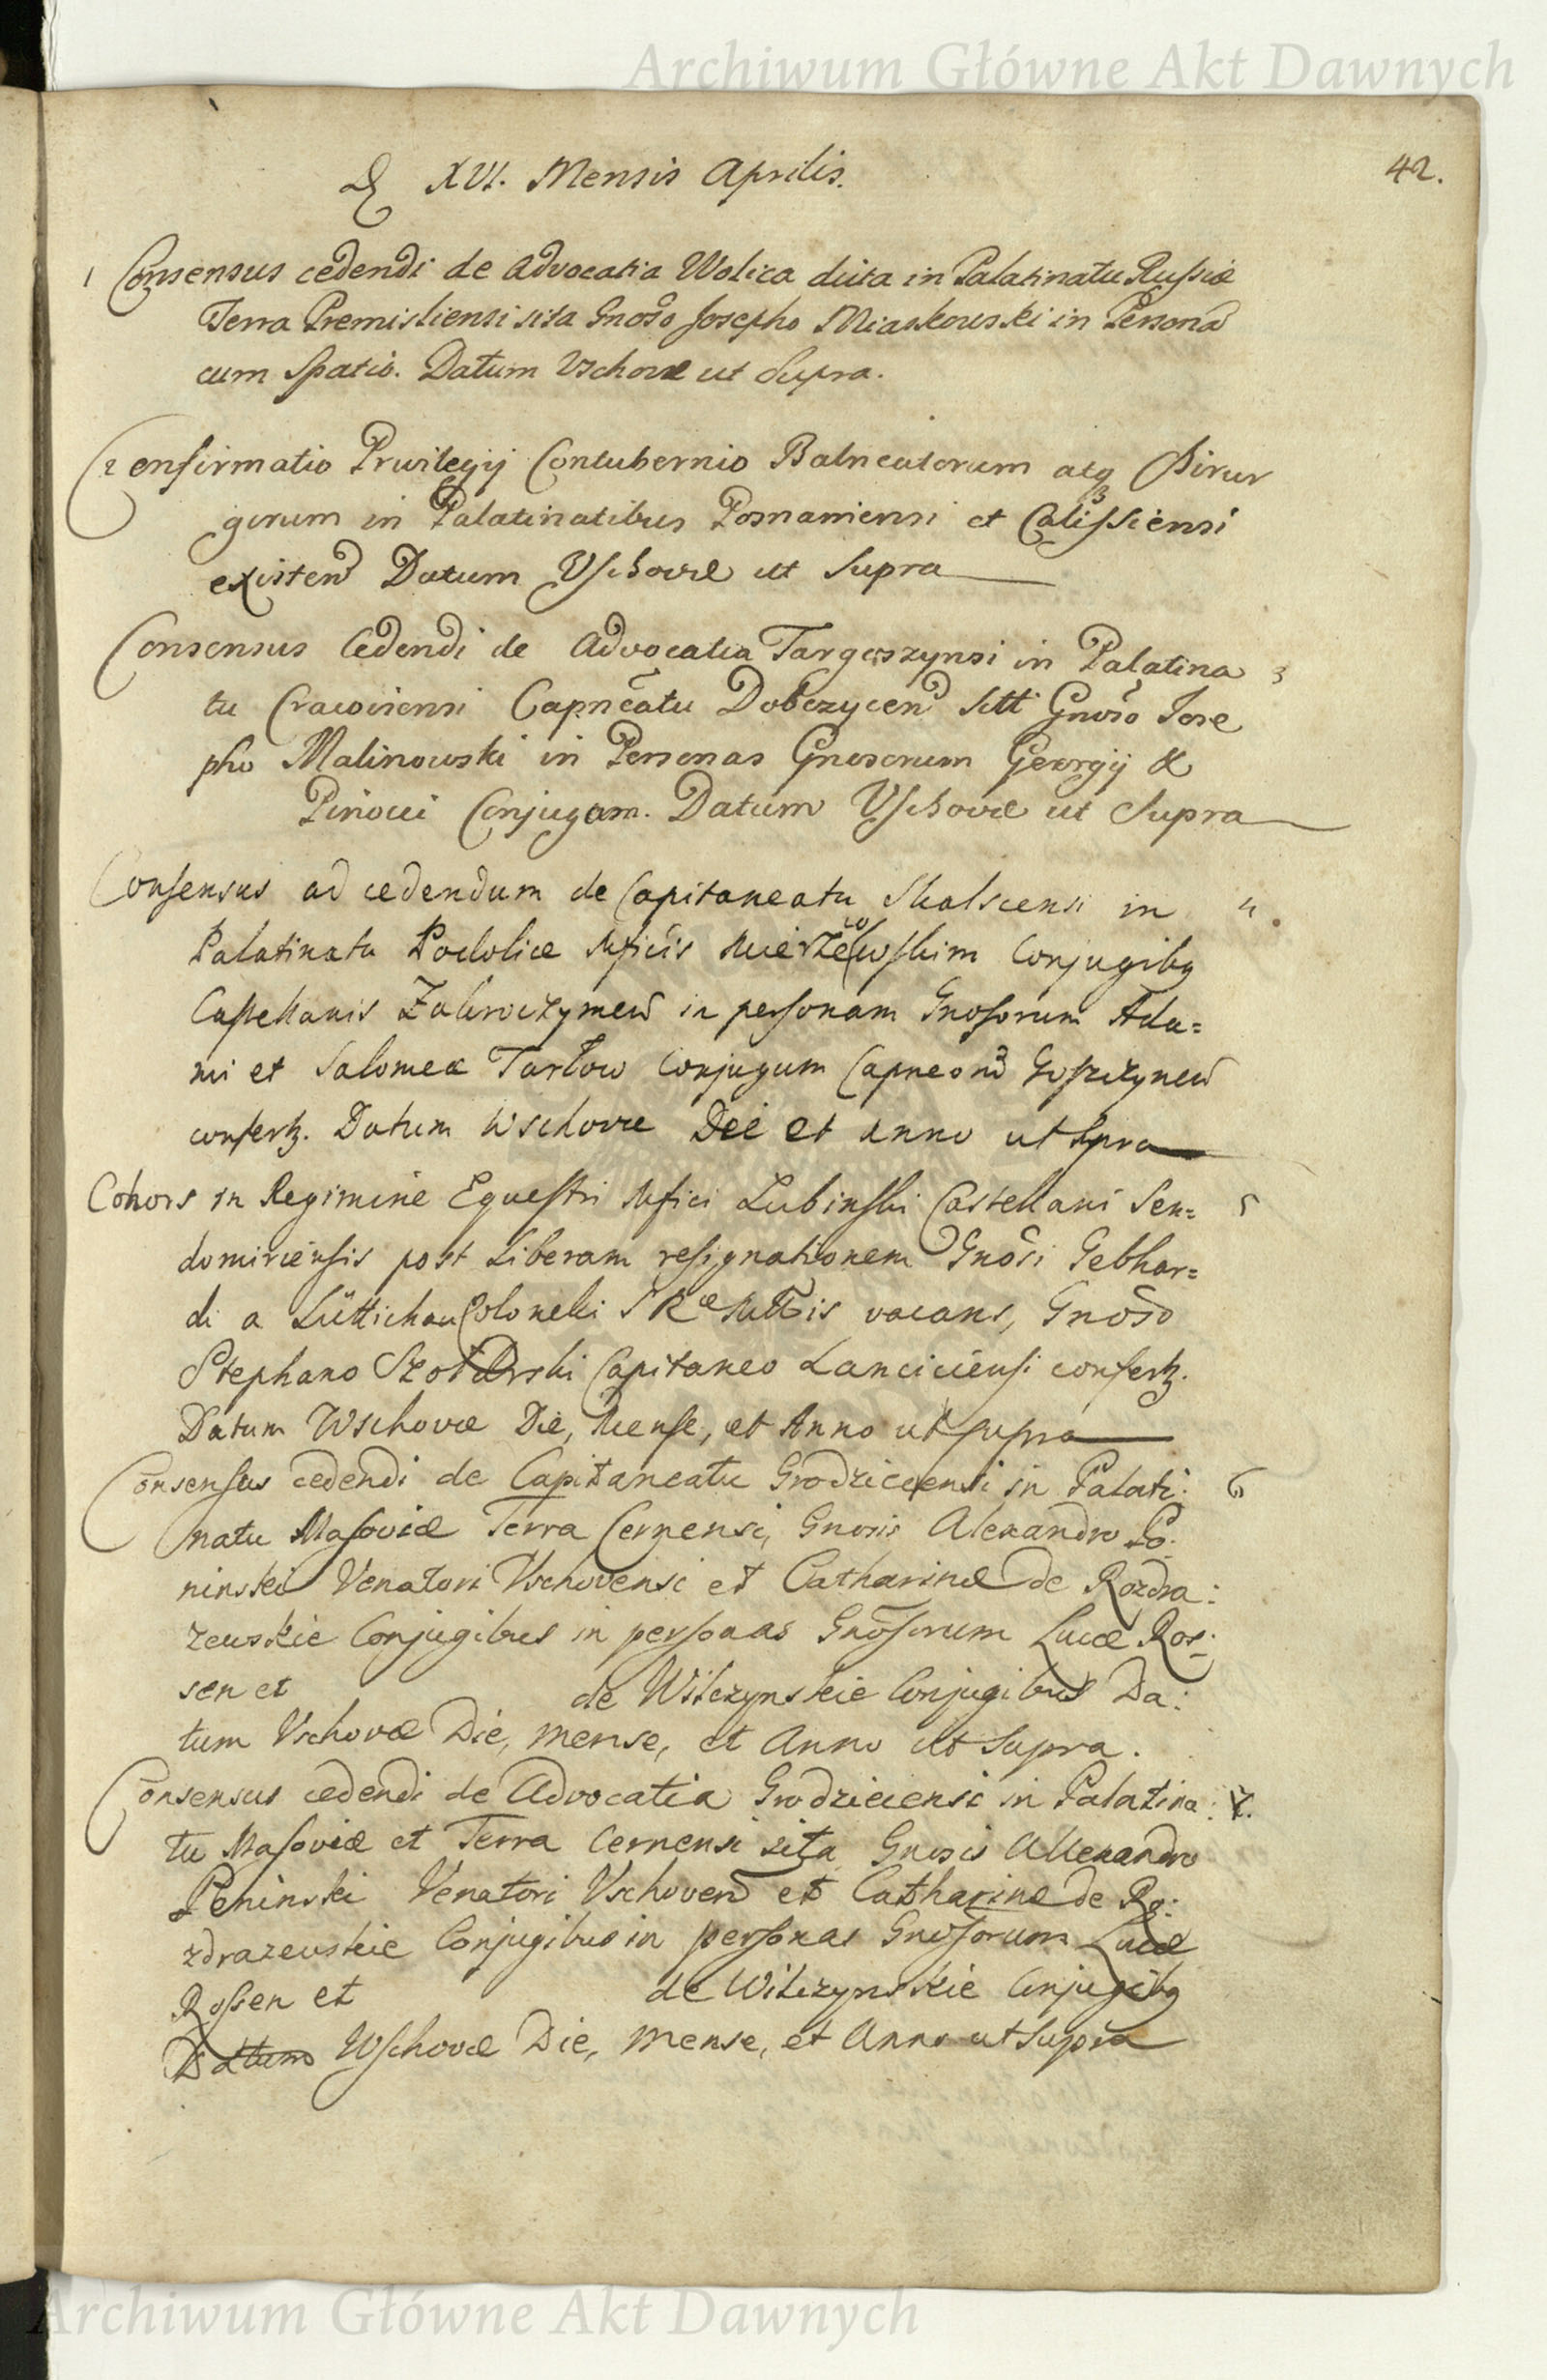 Archiwum Główne Akt Dawnych
42.
XVI. Mensis Aprilis.
1 Consensus cedendi de Advocatia Wolica dicta in Palatinatu Russiæ
Terra Premisliensi sita Gnoso Josepho Miaskowski in Persona
cum Spatio. Datum Vschovæ ut Supra.
2 Confirmatio Privilegij Contubernio Balneatorum atq Chirur
gorum in Palatinatibus Posnaniensi et Calissiensi
existen Datum Vschovæ ut Supra
Consensus Cedendi de Advocatia Targoszynsi in Palatina 3
tu Cracoviensi Capneatu Dobczycen sitt Gnoso Jose
pho Malinowski in Personas Gnosorum Georgij &
Pinocci Conjugam. Datum Vschovæ ut Supra
Consensus ad cedendum de Capitaneatu Skalscensi in 4.
Palatinatu Podoliæ Mficis Conjugibq
Castellanis Zakroczymen in personam Gnosorum Ada=
mi et Salomeæ Tarłow Conjugum Capneorum Goszczynen
confertz. Datum Wschovæ Die et anno ut Spra
Cohors in Regimine Equestri Mfici Lubinski Castellani Sen= 5
domiriensis post Liberam resignationem Gnosi Gebhar=
di a Lüttichau Colonelli S Ræ Mttis vacans, Gnoso
Stephano Szołdrski Capitaneo Lanciciensi confertz.
Datum Wschovæ Die, Mense, et Anno ut supra
Consensus cedendi de Capitaneatu Grodziecensi in Palati: 6
natu Masoviæ Terra Cernensi, Gnosis Alexandro Po:
ninski Venatori Vschovensi et Catharinæ de Rozdra:
zewskie Conjugibus in personas Gnosorum Lucæ Ros:
sen et de Wilczynskie Conjugibus Da:
tum Vschovæ Die, mense, et Anno ut Supra.
Consensus cedendi de Advocatia Grodzieciensi in Palatina: 7.
tu Masoviæ et Terra Cernensi sita Gnosis Allexandro
Poninski Venatori Vschoven et Catharinæ de Ro:
zdrazewskie Conjugibus in personas Gnosorum Lucæ
Rossen et de Wilczynskie Conjugibq
Datum Wschovæ Die, mense, et Anno ut Supra
Archiwum Główne Akt Dawnych